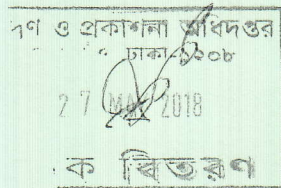 ণ ও প্রকাশনা অধিদপ্তর
ঢাকা-১২০৮
27 MAY 2018
ক বিতরণ